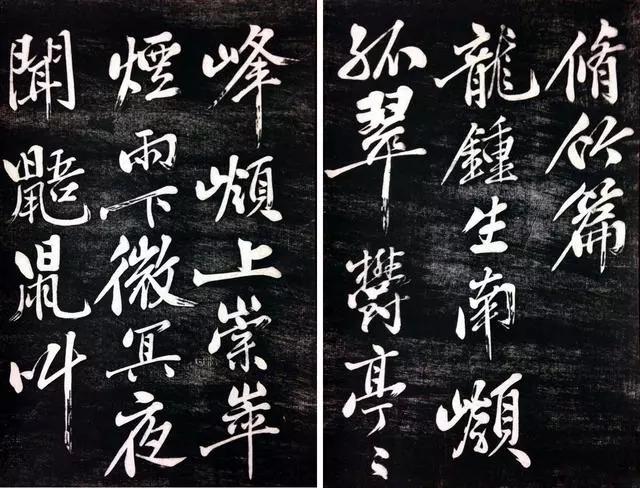 脩竹篇
龍鍾生南巔
孤翠鬱亭〻
峰嶺上崇崒
煙雨下微冥夜
聞鼯鼠叫